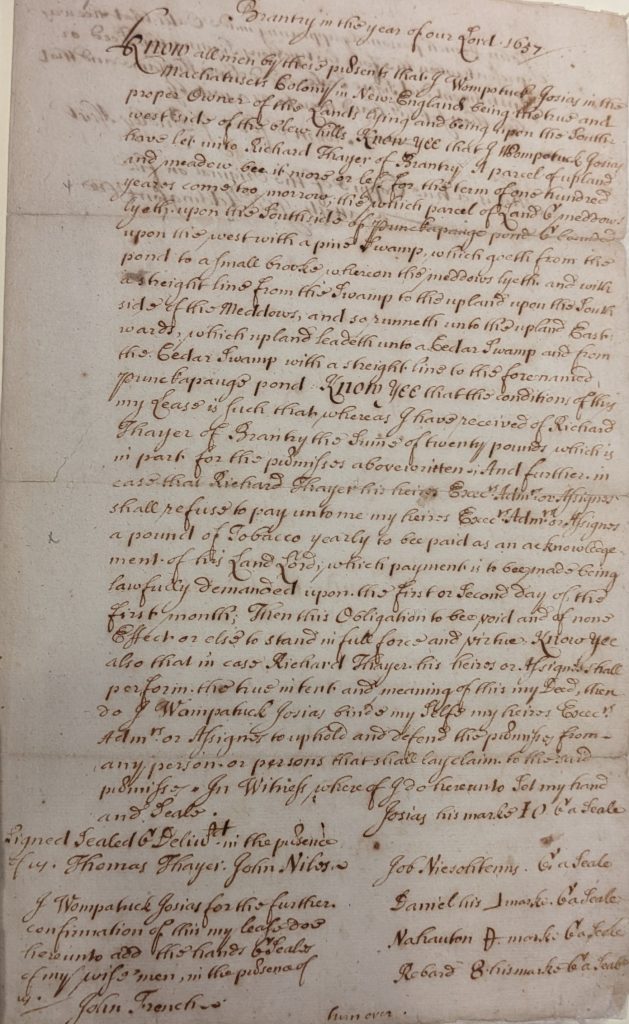 Brantry in the year of our Lord 1657
Know all men by these presents that I Wompotuck Josias in the
Machatusets Colony in New England being the true and
proper Owner of the Lands lying and being upon the South
west side of the blew hills. Know Yee that I Wompotuck Josias
have let unto Richard Thayer of Brantry A parcel of upland
and meadow bee it more or less for the term of one hundred
yeares come too morrow, the which parcel of Land & meddows
lyeth upon the South side of Punckapauge pond & bounded
upon the west with a pine Swamp, which goeth from the
pond to a small brooke whereon the meddows lyeth and with
a streight line from the Swamp to the upland upon the South
side of the Meddows, and so runneth unto the upland East
wards, which upland leadeth unto a Cedar Swamp and from
the Cedar Swamp with a streight line to the forenamed
Punckapauge pond. Know Yee that the conditions of this
my Lease is such that whereas I have received of Richard
Thayer of Brantry the Sume of twenty pounds which is
in part for the primisses above written. And further in
case that Richard Thayer his heires Execrs Admrs or Assignes
shall refuse to pay unto me my heires Execrs Admrs or Assignes
a pound of Tobacco yearly to bee paid as an acknowledge-
ment of his Land Lord, which payment is to bee made being
lawfully demanded upon the first or Second day of the
first month, Then this Obligation to bee void and of none
Effect or else to stand in full force and virtue. Know Yee
also that in case Richard Thayer his heires or Assignes shall
perform the true intent and meaning of this my Deed, then
do I Wompatuck Josias binde my Selfe my heires Execrs
Admrs or Assignes to uphold and defend the primisse from
any person or persons that shall lay claim to the said
primisse. In Witness where of I do hereunto Set my hand
and Seale.
Josias his marke IO & a Seale
Signed Sealed & Deliv in the presence
of us. Thomas Thayer John Niles.
Job & a Seale
Daniel his marke & a Seale
Nahauton marke & a Seale
Robard his marke & a Seale
I Wompatuck Josias for the further
confirmation of this my lease doe
hereunto add the hands & Seales
of my wise men, in the presence of
us. John French
turn over.